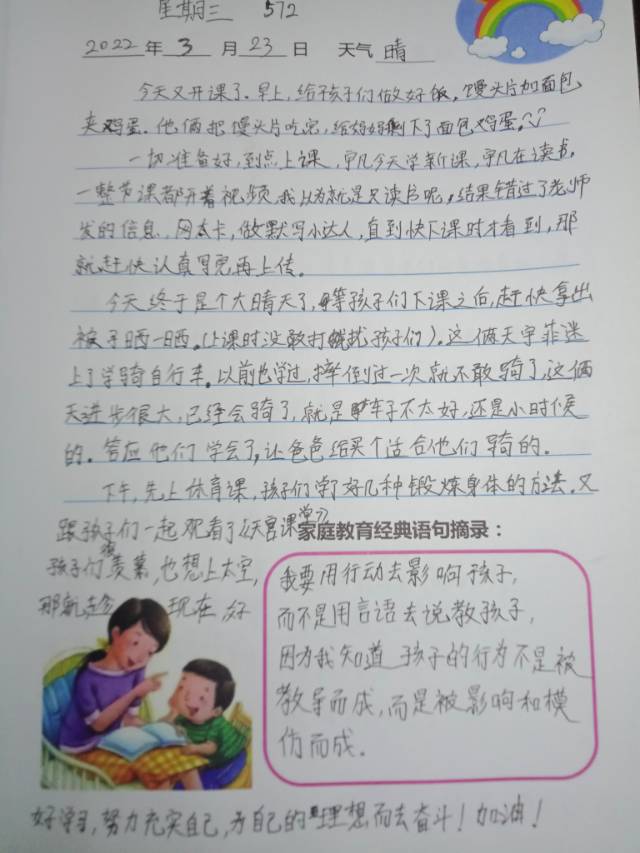 星期三 572
2022年3月23日 天气 晴
今天又开课了.早上,给孩子们做好饭,馒头片加面包
夹鸡蛋.他俩把馒头片吃完,给妈妈剩下了面包鸡蛋.
一切准备好,到点上课,宇凡今天学新课,宇凡在读书,
一整节课都开着视频,我以为就是只读书呢,结果错过了老师
发的信息,网太卡,做默写小达人,直到快下课时才看到,那
就赶快认真写完再上传。
今天终于是个大晴天了,等孩子们下课之后,赶快拿出
被子晒一晒.(上课时没敢打扰孩子们).这俩天宇菲迷
上了学骑自行车.以前也学过,摔倒过一次就不敢骑了,这俩
天进步很大,已经会骑了,就是车子不太好,还是小时候
的.答应他们学会了,让爸爸给买个适合他们骑的.
下午,先上体育课,孩子们学了好几种锻炼身体的方法.又
跟孩子们一起观看了《天宫课堂》
家庭教育经典语句摘录:
孩子们很羡慕,也想上太空,
那就趁现在,好
我要用行动去影响孩子,
而不是用言语去说教孩子,
因为我知道孩子的行为不是被
教导而成,而是被影响和模
仿而成.
好学习,努力充实自己,为自己的理想而去奋斗!加油!